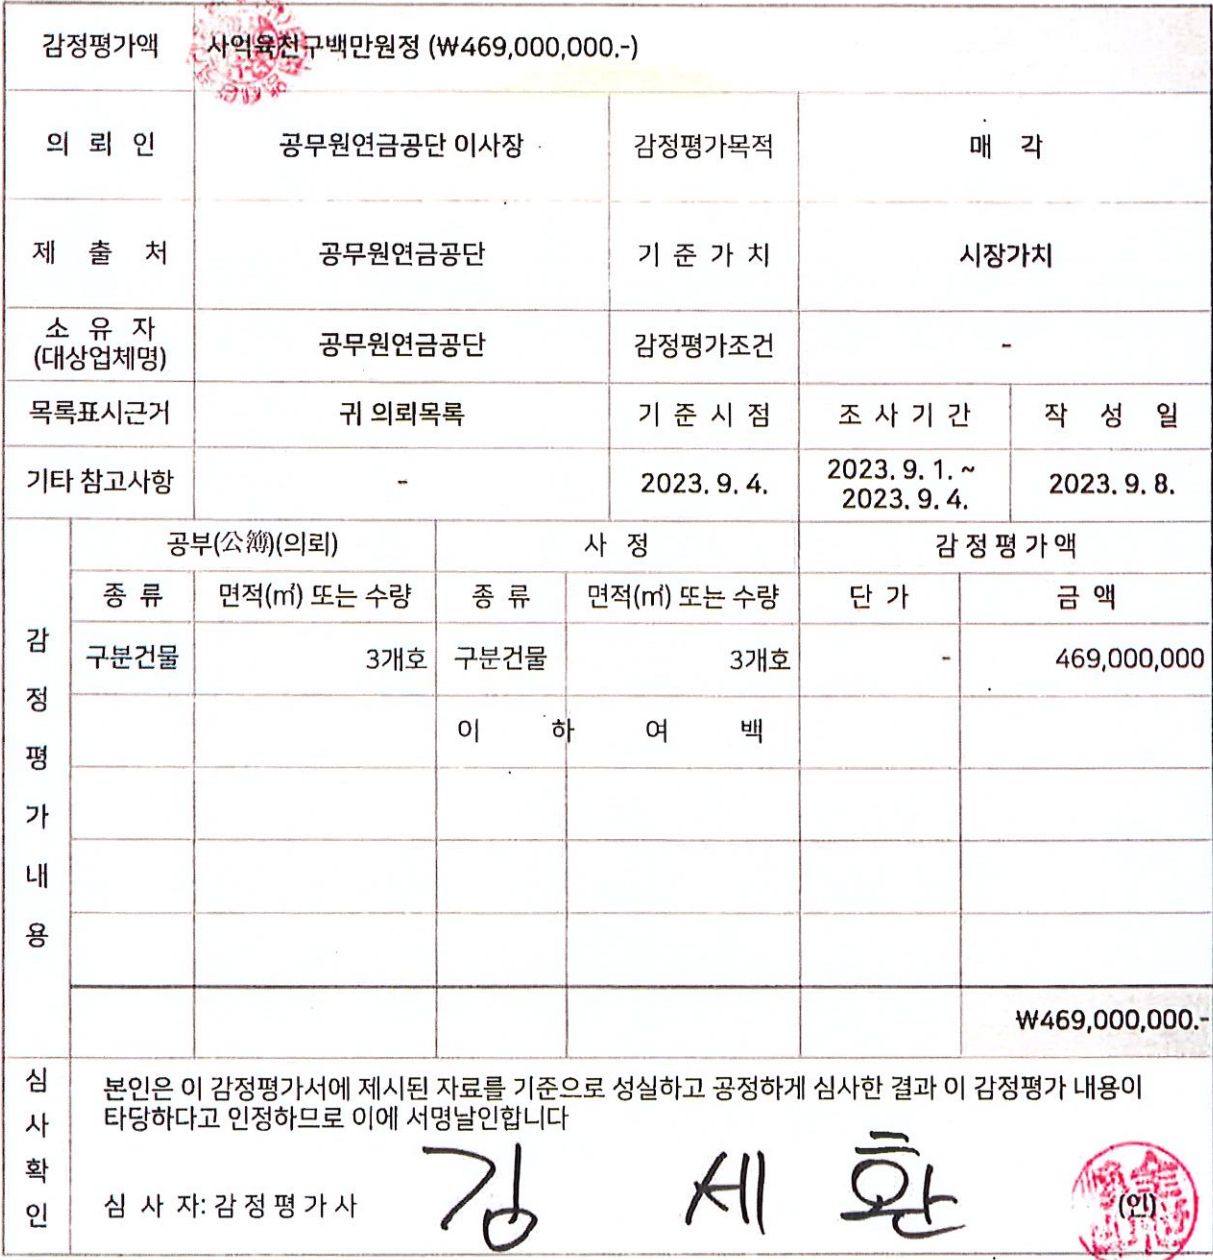 감정평가액 사억육천구백만원정 (₩469,000,000.-)
의 뢰 인 공무원연금공단 이사장 감정평가목적 매 각
제 출 처 공무원연금공단 기 준 가 치 시장가치
소 유 자
(대상업체명) 공무원연금공단 감정평가조건 -
목록표시근거 귀 의뢰목록 기 준 시 점 조 사 기 간 작 성 일
기타 참고사항 - 2023. 9. 4. 2023. 9. 1. ~
2023. 9. 4. 2023. 9. 8.
감정평가내용
공부(公簿)(의뢰) 사 정 감 정 평 가 액
종 류 면적(㎡) 또는 수량 종 류 면적(㎡) 또는 수량 단 가 금 액
구분건물 3개호 구분건물 3개호 - 469,000,000
이 하 여 백
₩469,000,000.-
심사확인
본인은 이 감정평가서에 제시된 자료를 기준으로 성실하고 공정하게 심사한 결과 이 감정평가 내용이
타당하다고 인정하므로 이에 서명날인합니다
심 사 자: 감 정 평 가 사 김 세 환 (인)